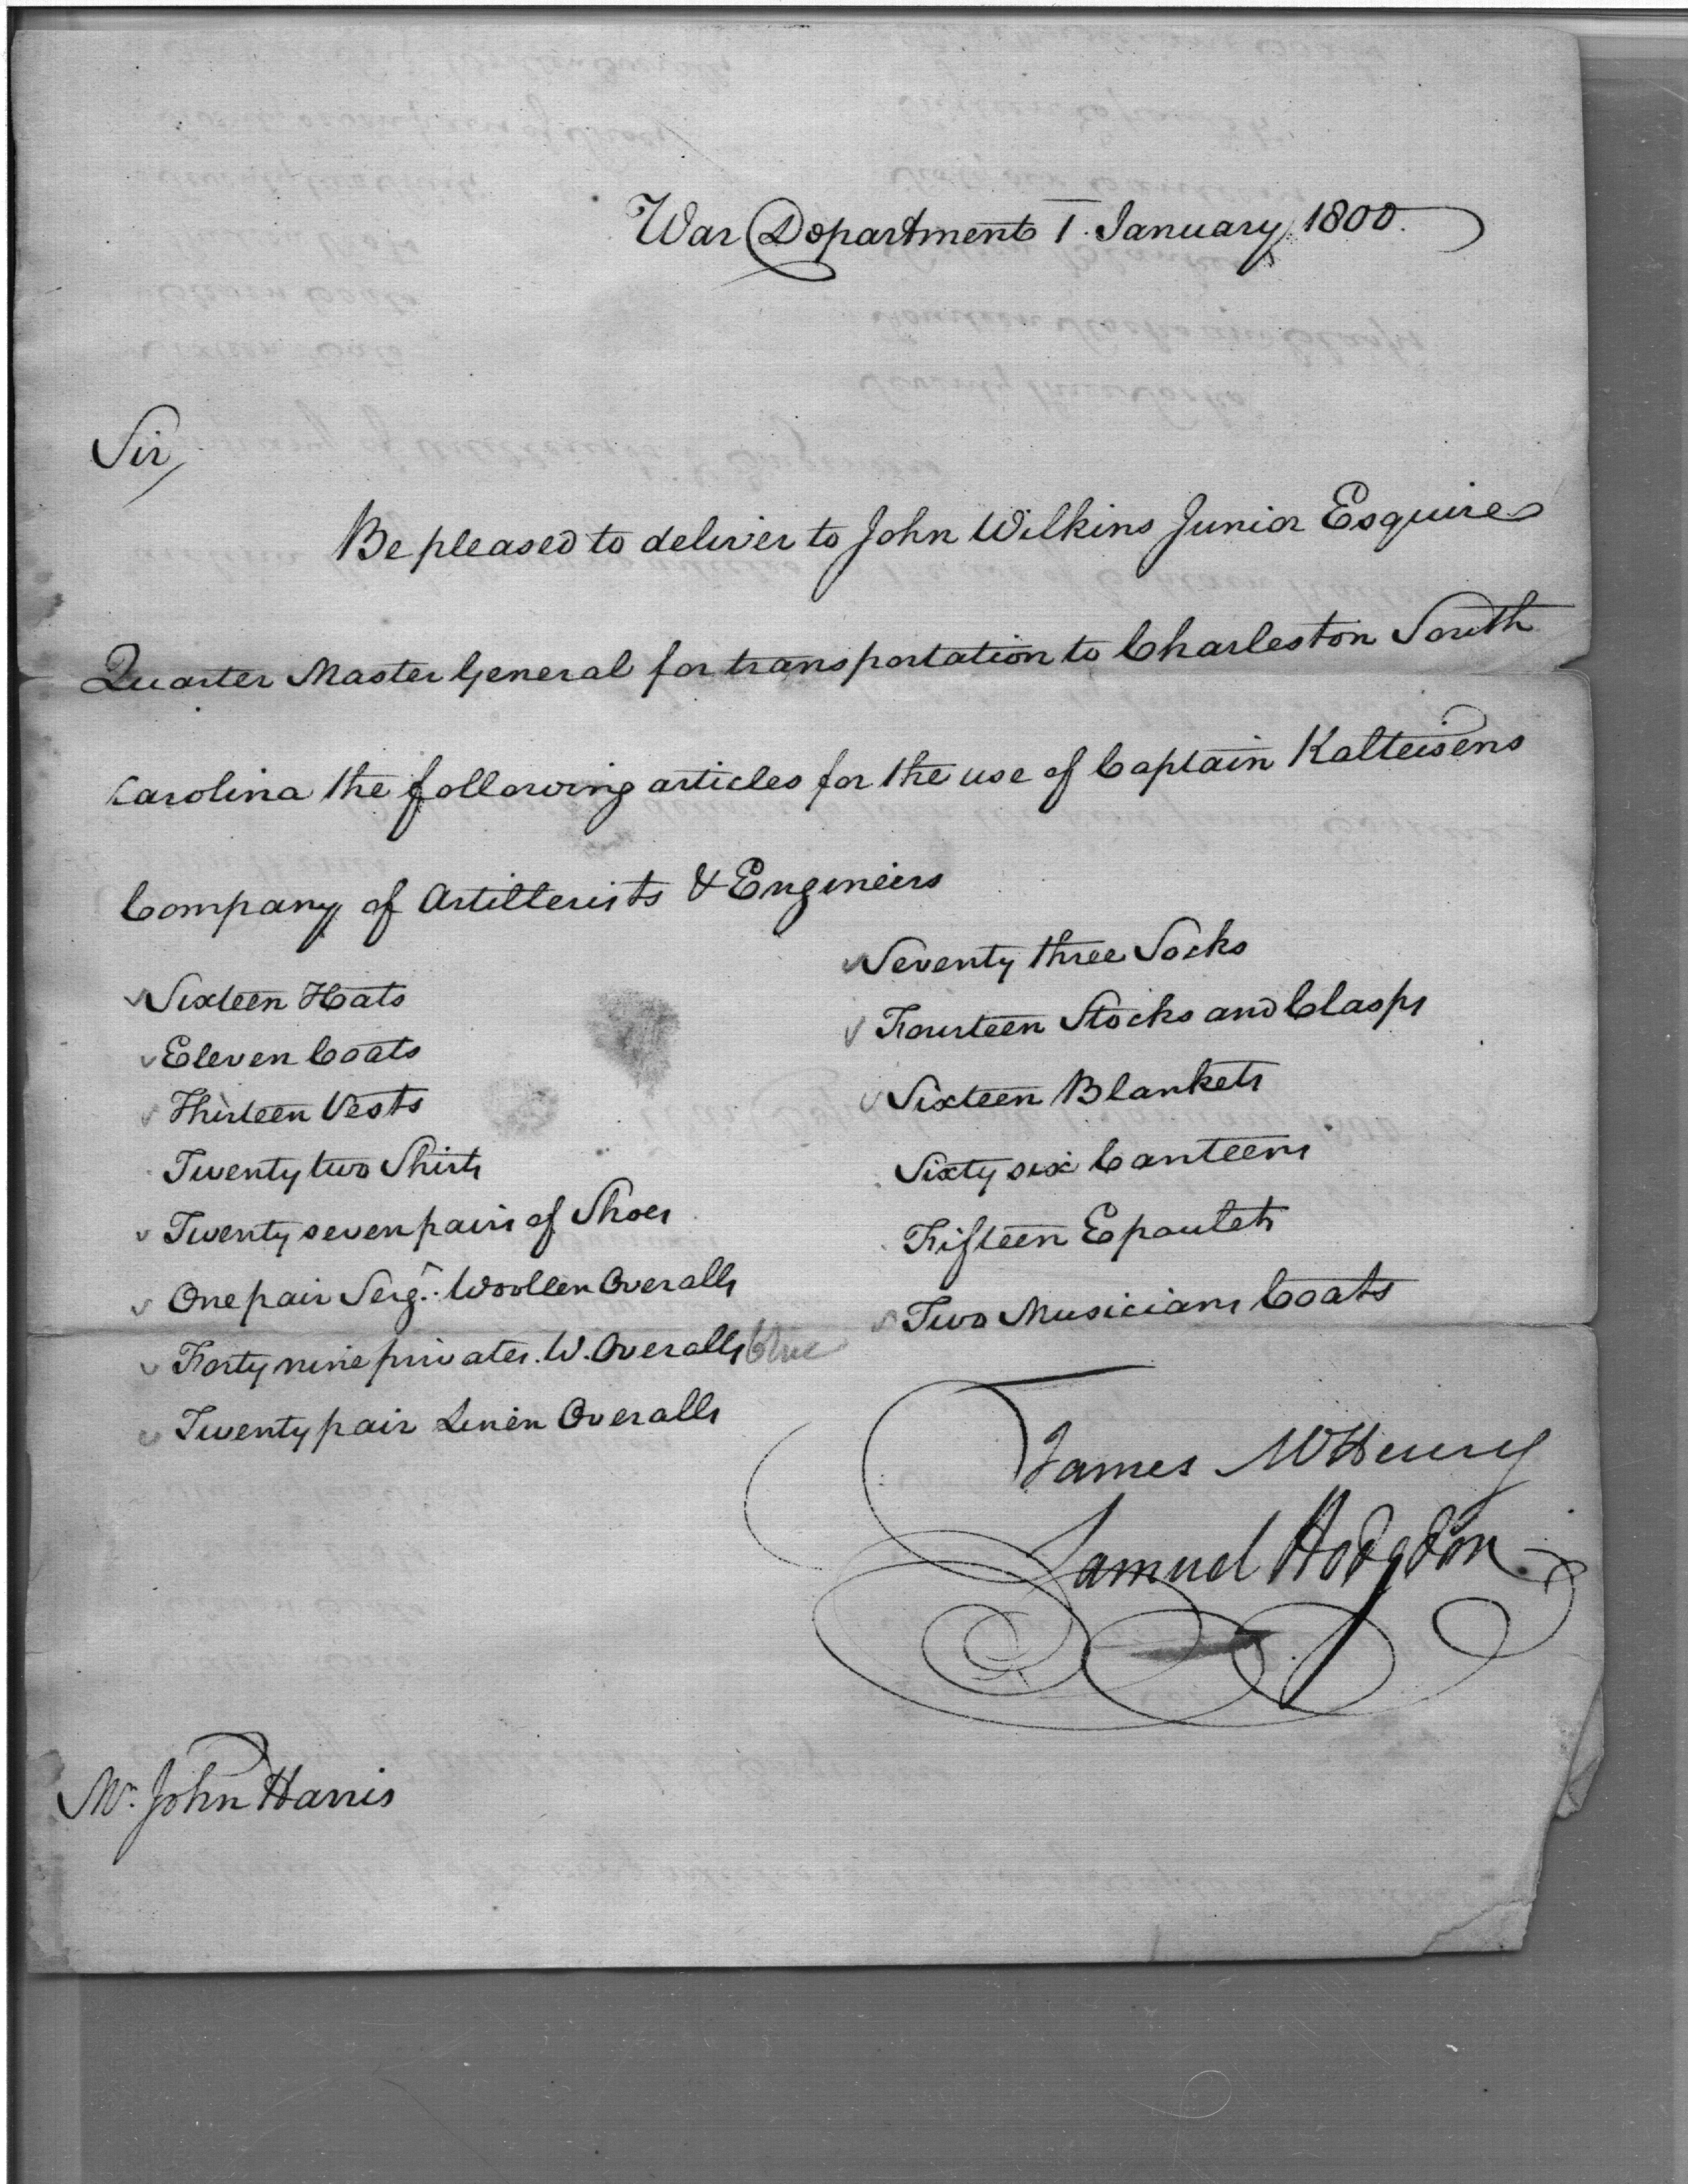 War Department 1. January 1800.
Sir,
Be pleased to deliver to John Wilkins Junior Esquire
Quarter Master General for transportation to Charleston South
Carolina the following articles for the use of Captain Kalteisens
Company of Artillerists & Engineers
Sixteen Hats
Eleven Coats
Thirteen Vests
Twenty two Shirts
Twenty seven pairs of Shoes
One pair Sergt. Woollen Overalls
Forty nine privates. W. Overalls blue
Twenty pair Linen Overalls
Seventy three Socks
Fourteen Stocks and Clasps
Sixteen Blankets
Sixty six Canteens
Fifteen Epaulets
Two Musicians Coats
James McHenry
Samuel Hodgdon
Mr. John Harris